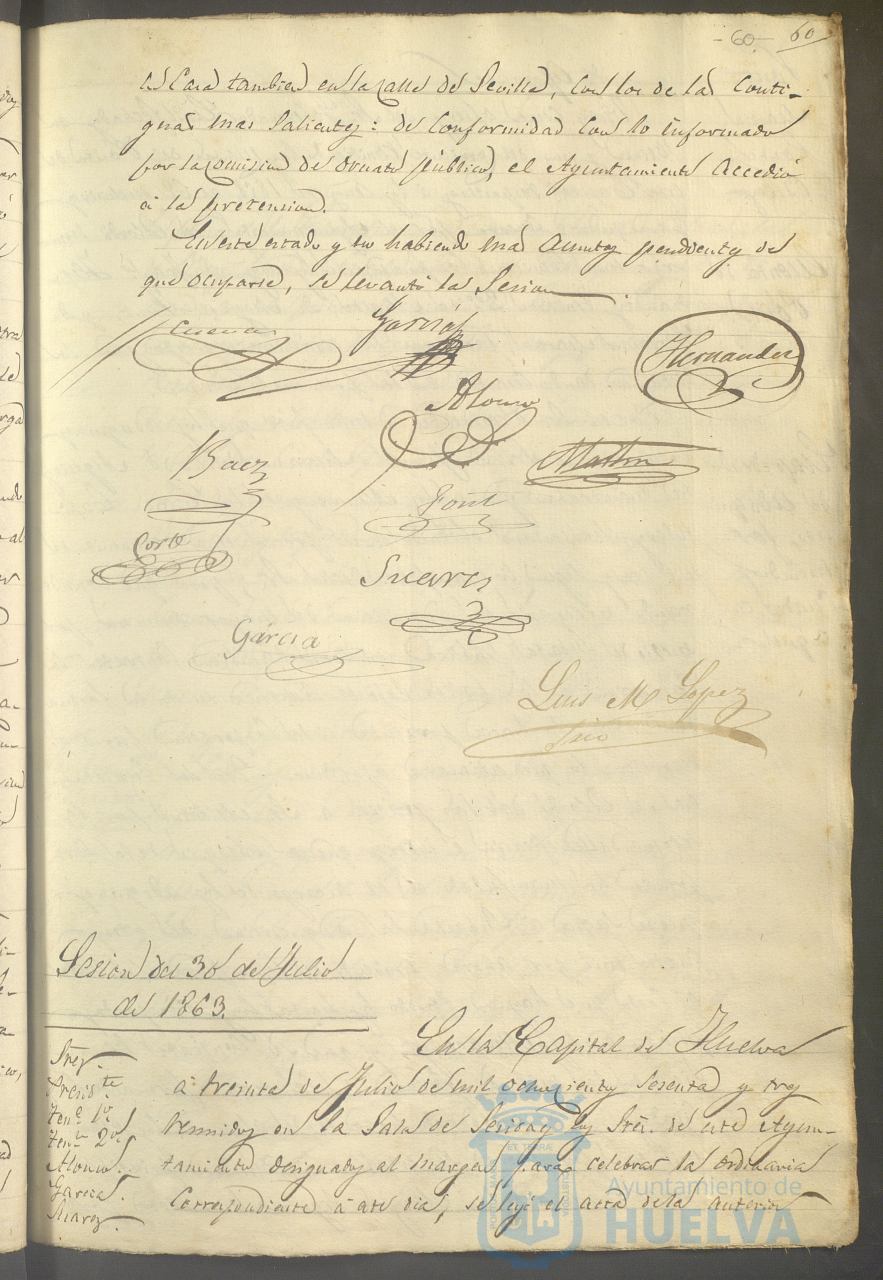 -60- 60
su Casa tambien en la Calle de Sevilla, con los de las Conti-
guas mas salientes: de Conformidad con lo informado
por la Comision de ornato público, el Ayuntamiento accedió
á la pretension.
En este estado y no habiendo mas asuntos pendientes de
que ocuparse, se levantó la Sesion
Cueva García
Hernandez
Alonso
Baez
Martin
Font
Corte
Suarez
García
Luis M Lopez
Srio
Sesion del 30 de Julio
de 1863.
En la Capital de Huelva
Sres.
Presidte
á treinta de Julio de mil ochocientos sesenta y tres
Tene 1º
Tene 2º
reunidos en la Sala de Sesiones los Sres. de este Ayun-
Alonso.
tamiento designados al margen para celebrar la ordinaria
García.
Suarez.
Correspondiente á este dia, se leyó el acta de la anterior
Ayuntamiento de
HUELVA